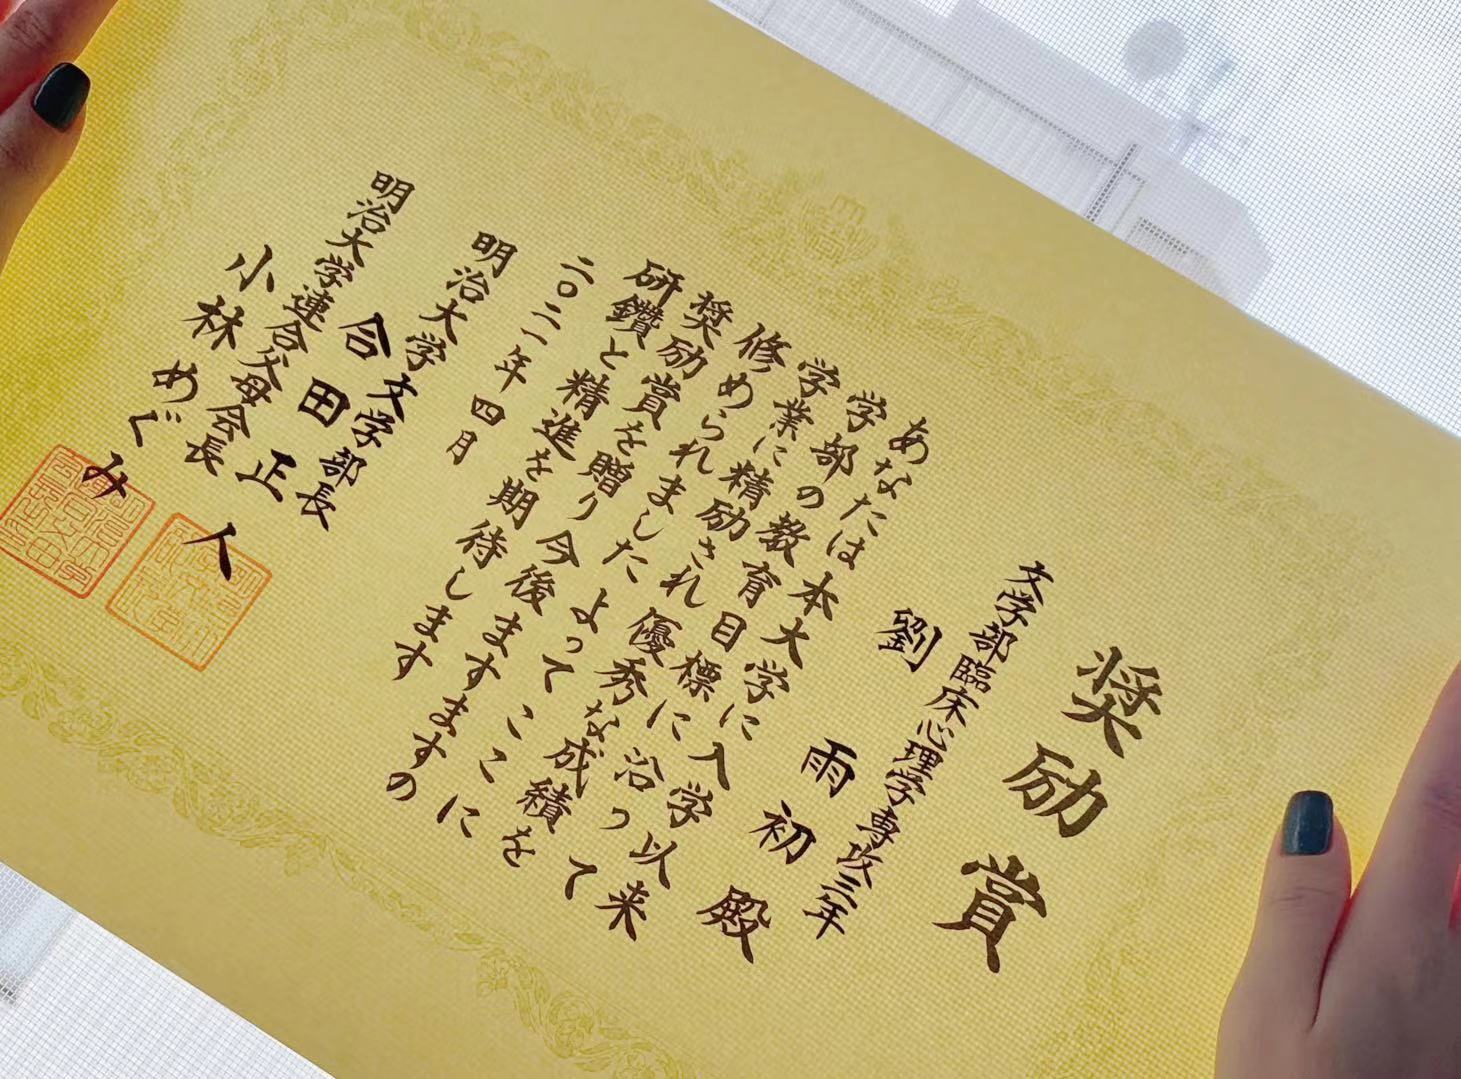 奨励賞
文学部臨床心理学専攻三年
劉雨初殿
あなたは本大学に入学以来
学部の教育目標に沿って
学業に精励され優秀な成績を
修められました よって ここに
奨励賞を贈り今後ますますの
研鑽と精進を期待します
二〇二一年四月
明治大学文学部長
合田正人
明治大学連合父母会長
小林めぐみ